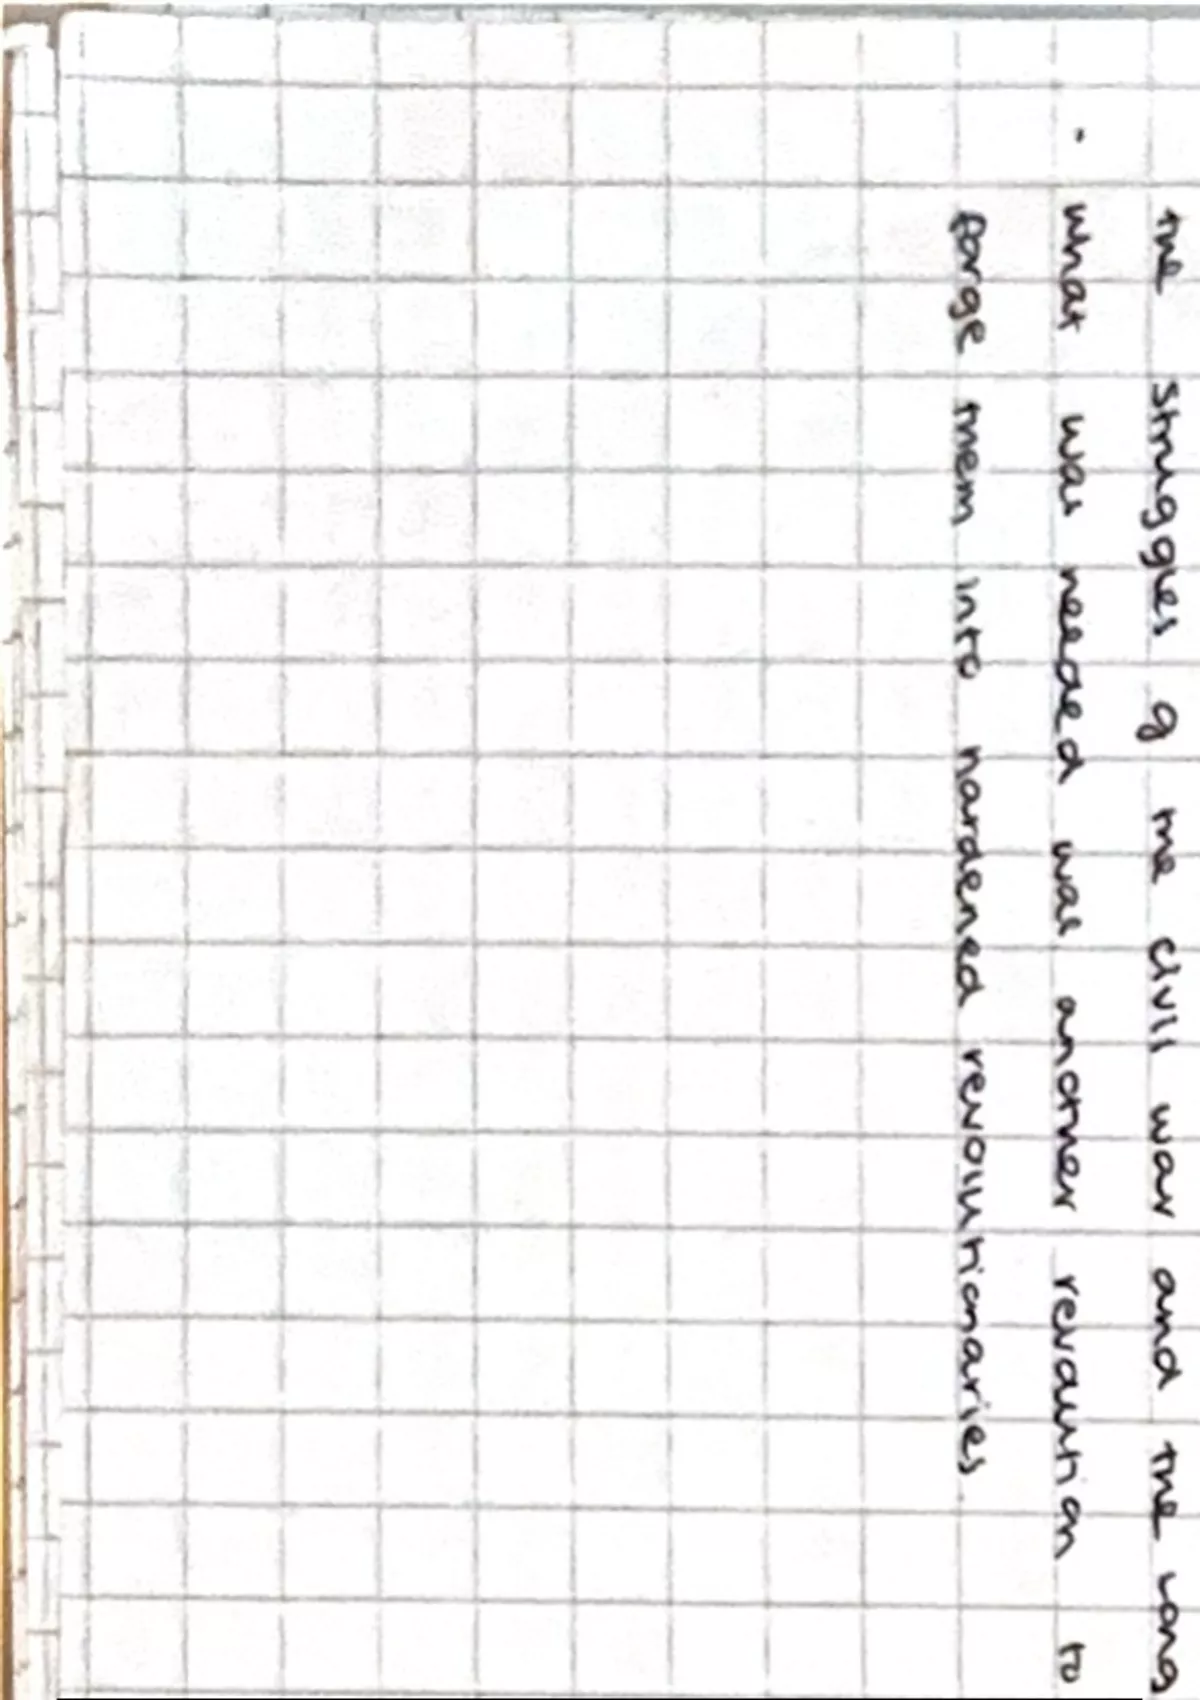 the struggles of the civil war and the long
• what was needed was another revolution to
forge them into hardened revolutionaries.